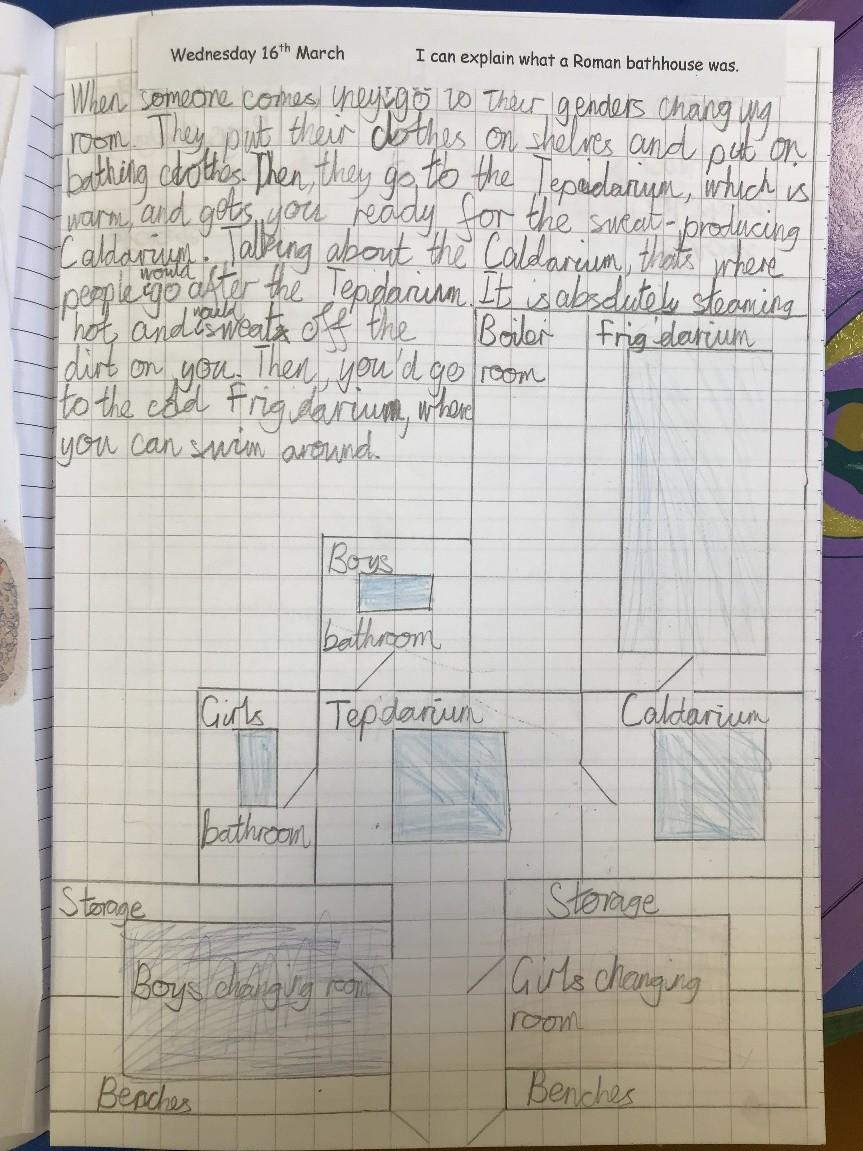 Wednesday 16th March I can explain what a Roman bathhouse was.
When someone comes, they go to their genders changing
room. They put their clothes on shelves and put on
bathing clothes. Then, they go to the Tepadarium, which is
warm, and gets you ready for the sweat-producing
Caldarium. Talking about the Caldarium, thats where
people would go after the Tepidarium. It is absolutely steaming
hot and would sweat off the
dirt on you. Then, you'd go
to the cold Frigidarium, where
you can swim around.
Boiler
room
Frigidarium
Boys
bathroom
Girls
bathroom
Tepidarium
Caldarium
Storage
Boys changing room
Benches
Storage
Girls changing
room
Benches